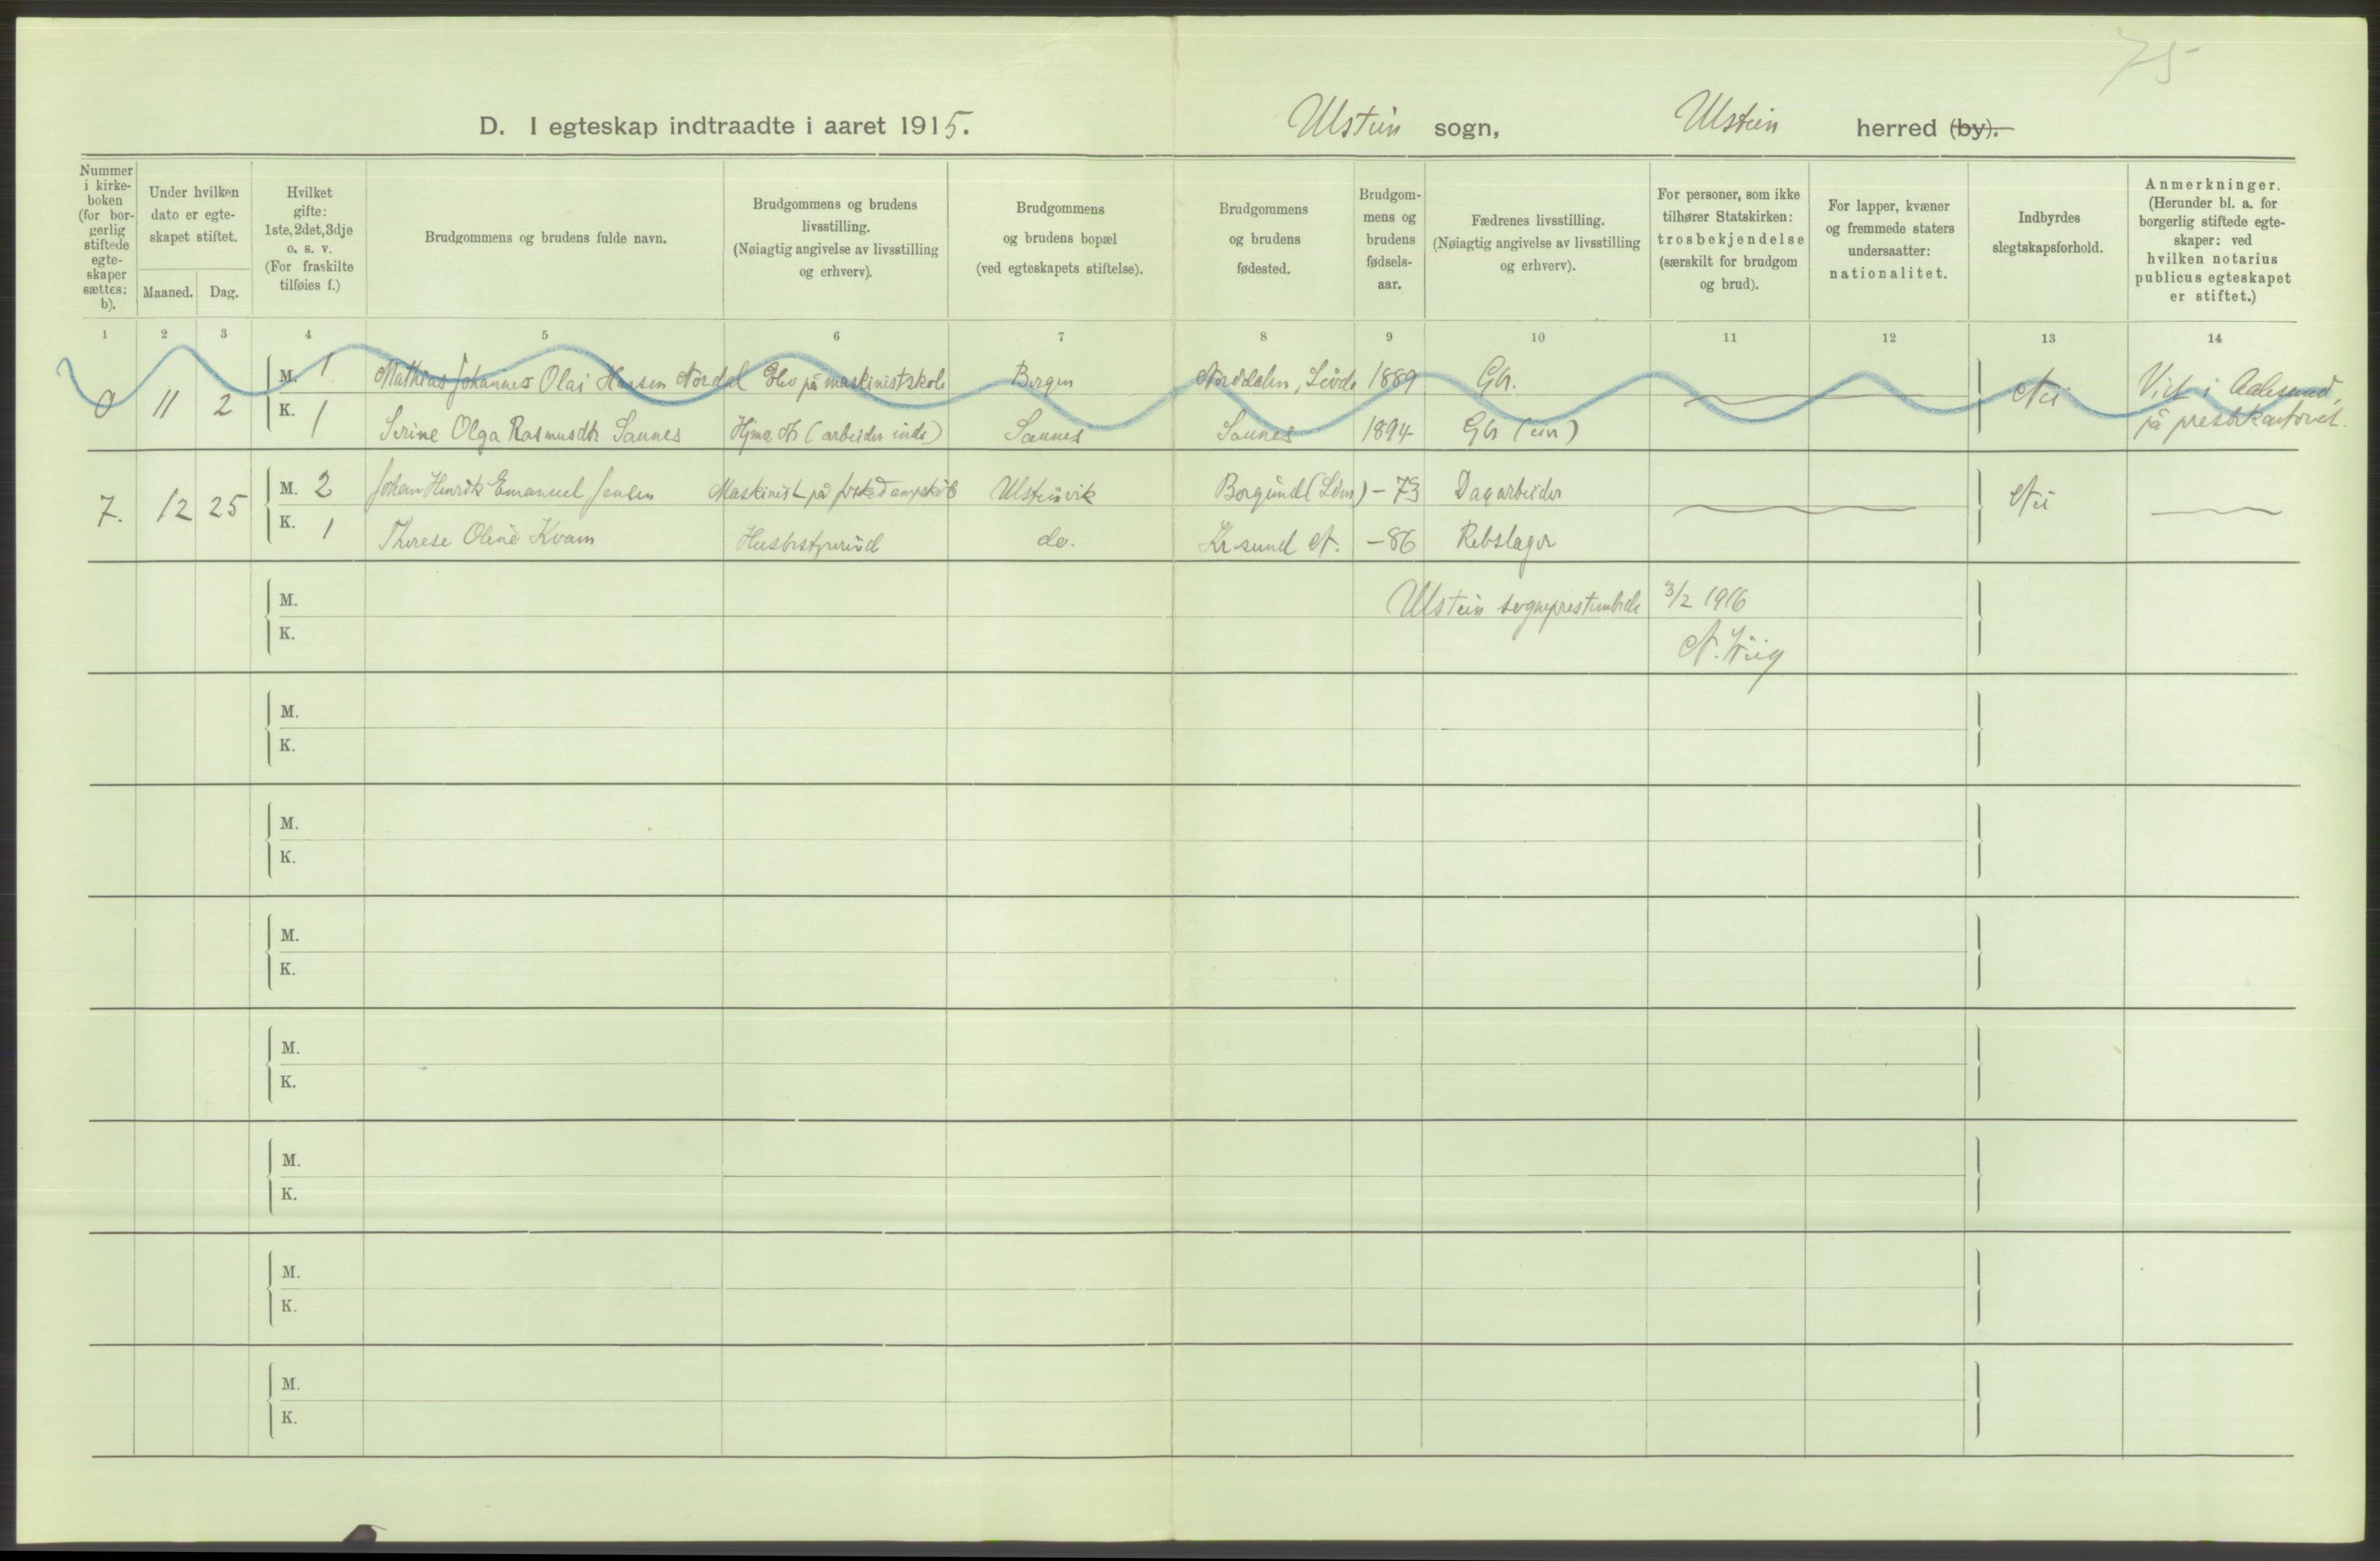 75
D. I egteskap indtraadte i aaret 1915. Ulstein sogn, Ulstein herred (by).
Nummer i kirke-boken (for bor-gerlig stiftede egte-skaper sættes: b).
Under hvilken dato er egte-skapet stiftet.
Maaned. Dag.
Hvilket gifte: 1ste, 2det, 3dje o. s. v. (For fraskilte tilføies f.)
Brudgommens og brudens fulde navn.
Brudgommens og brudens livsstilling. (Nøiagtig angivelse av livsstilling og erhverv).
Brudgommens og brudens bopæl (ved egteskapets stiftelse).
Brudgommens og brudens fødested.
Brudgom-mens og brudens fødsels-aar.
Fædrenes livsstilling. (Nøiagtig angivelse av livsstilling og erhverv).
For personer, som ikke tilhører Statskirken: trosbekjendelse (særskilt for brudgom og brud).
For lapper, kvæner og fremmede staters undersaatter: nationalitet.
Indbyrdes slegtskapsforhold.
Anmerkninger. (Herunder bl. a. for borgerlig stiftede egte-skaper: ved hvilken notarius publicus egteskapet er stiftet.)
1 2 3 4 5 6 7 8 9 10 11 12 13 14
0 11 2 M. 1 Mathias Johannes Olai Hansen Nordal Elev på maskinistskole Bergen Norddalen, Løvde 1889 Gbr. Nei Viet i Aalesund,
K. 1 Serine Olga Rasmusdtr Saunes Hjmv. dtr (arbeider inde) Saunes Saunes 1894 Gbr (eier) på prestekontoret.
7. 12 25 M. 2 Johan Henrik Emanuel Jensen Maskinist på fiskedampskib Ulsteinvik Borgund (Sdm) -73 Dagarbeider Nei
K. 1 Therese Oline Kvam Husbestyrerind do. Kr.sund N. -86 Rebslager
M. Ulstein sogneprestembede 3/2 1916
K. N. Wiig
M.
K.
M.
K.
M.
K.
M.
K.
M.
K.
M.
K.
M.
K.